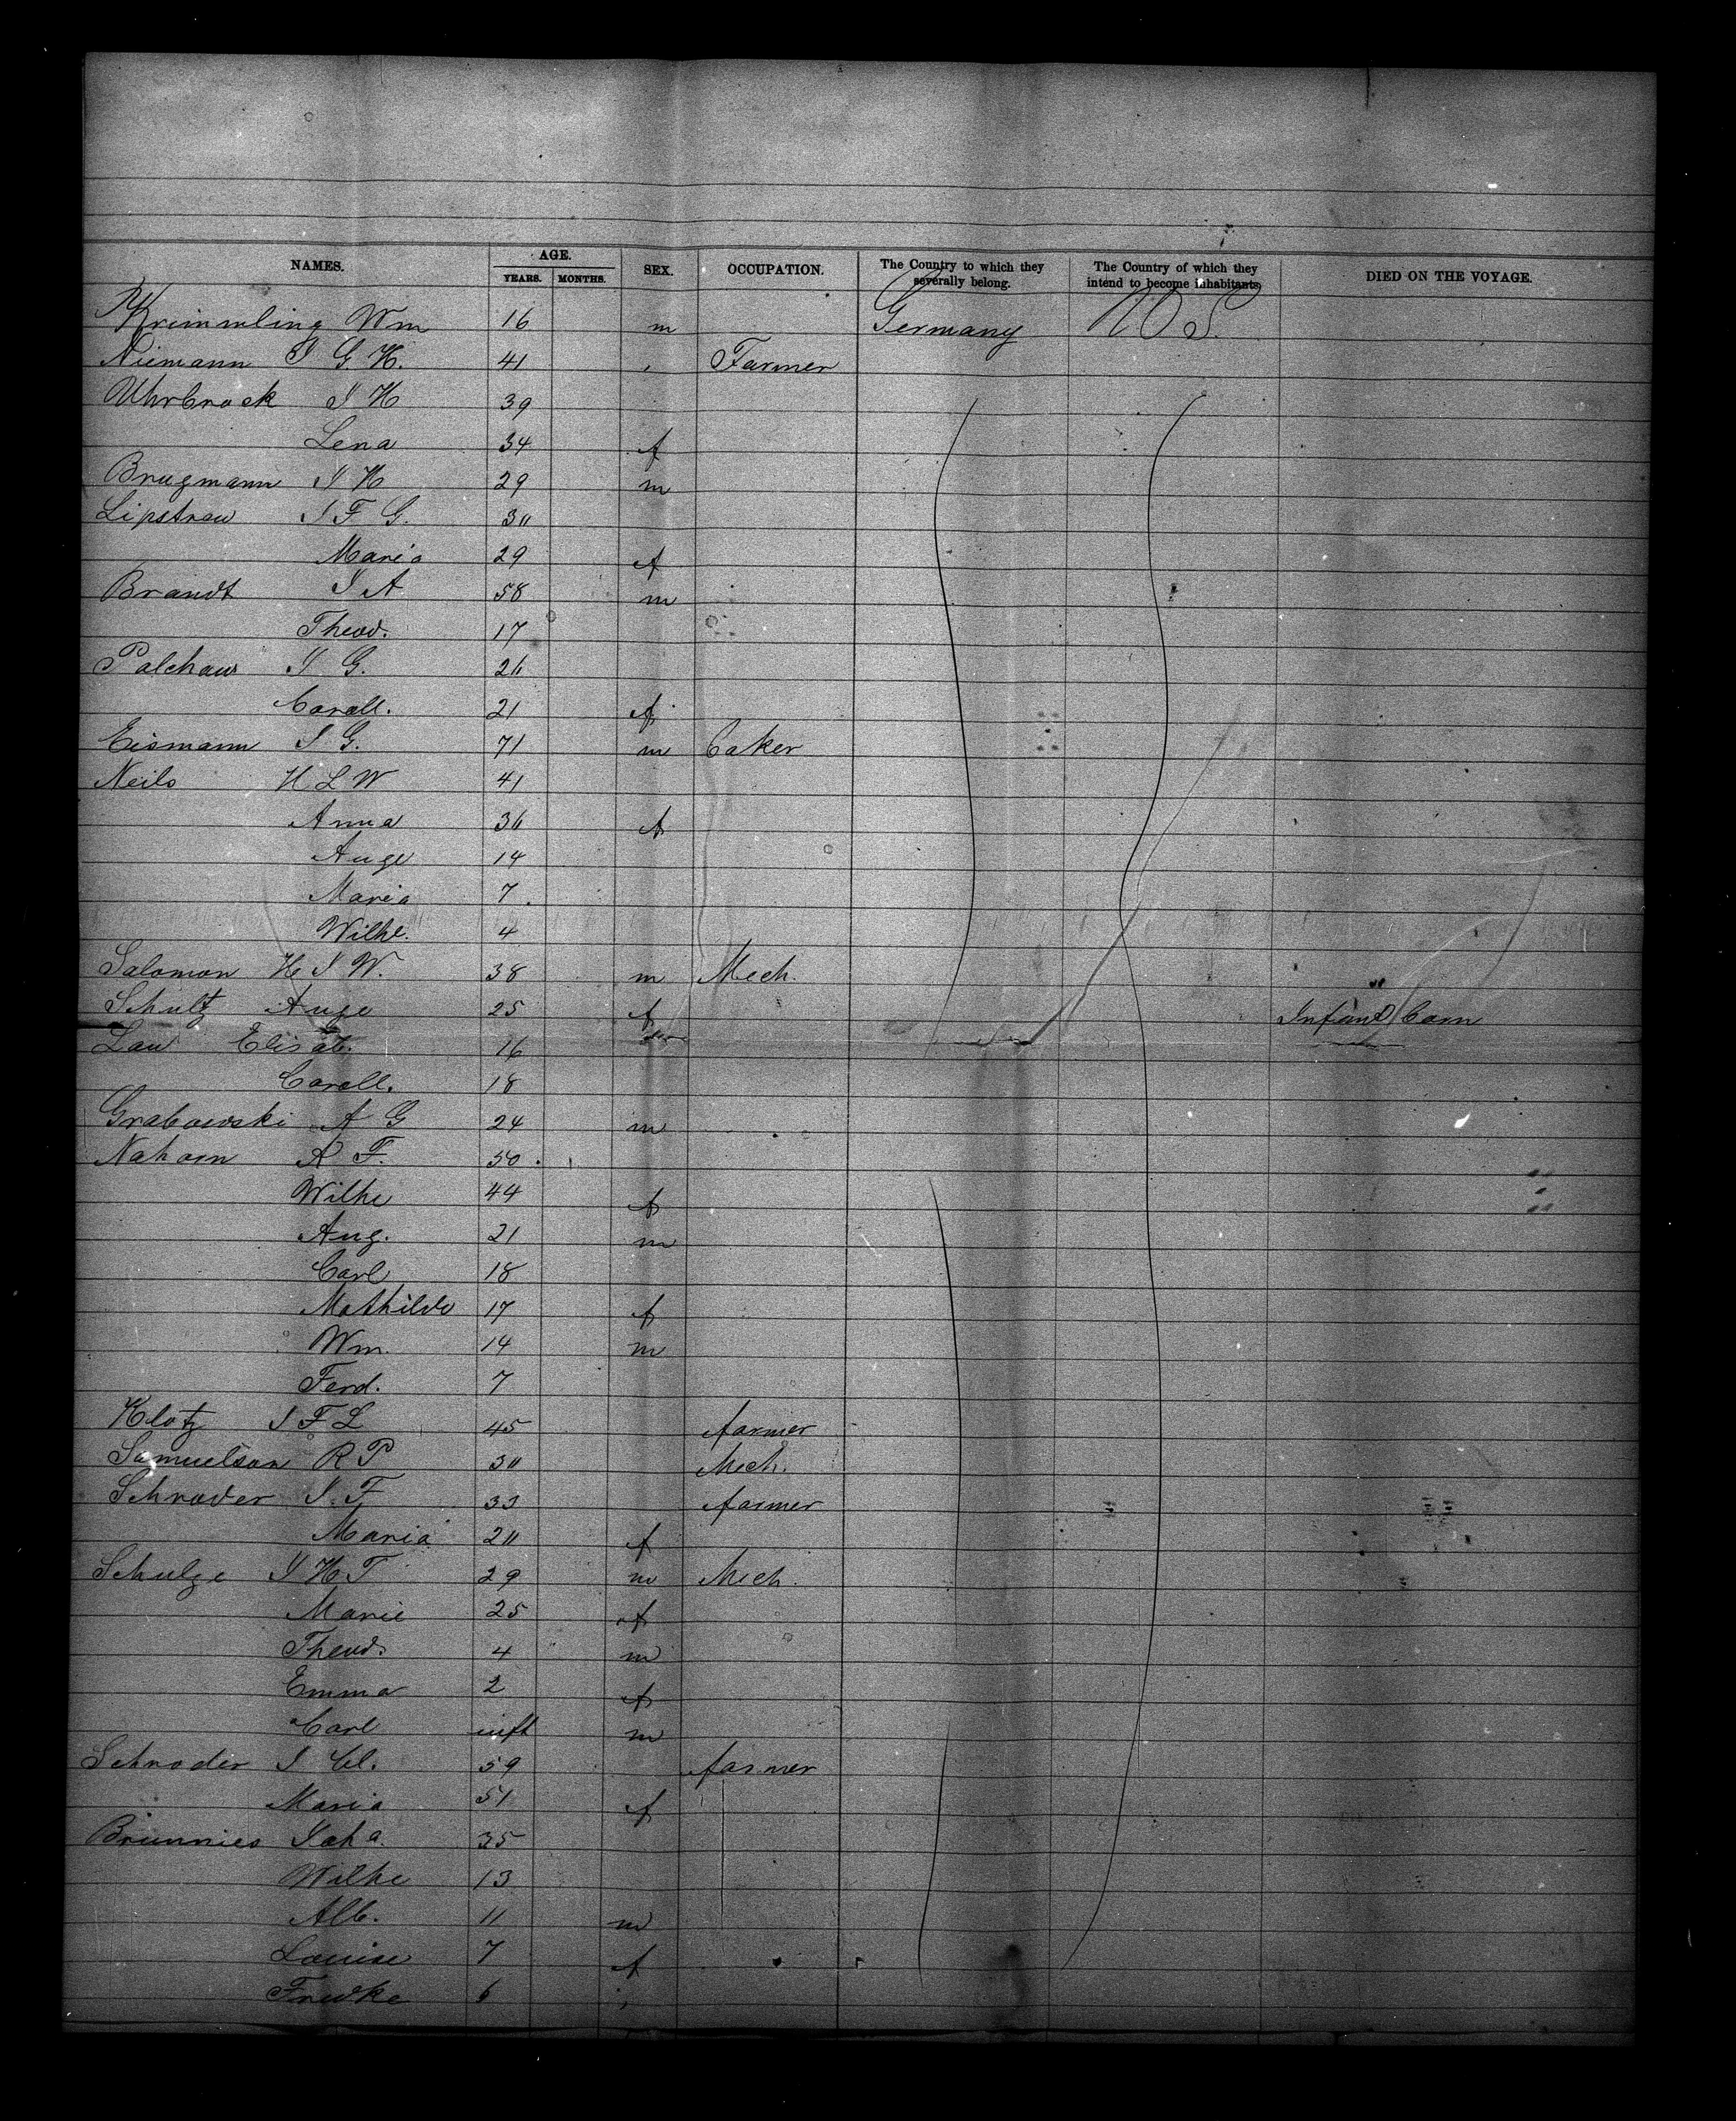 NAMES. AGE. YEARS. MONTHS. SEX. OCCUPATION. The Country to which they severally belong. The Country of which they intend to become inhabitants. DIED ON THE VOYAGE.
Krimmling Wm 16 m Germany U S.
Niemann J G H. 41 " Farmer
Uhrbrock J H 39
Lena 34 f
Brugmann J H 29 m
Lipstreu J F G. 30
Maria 29 f
Brandt J A 58 m
Theod. 17
Palchau J G. 26
Caroll. 21 f
Eismann J G. 71 m baker
Neils H L W 41
Anna 36 f
Auge 14
Maria 7
Wilhe. 4
Salomon H J W. 38 m Mech.
Schultz Auge 25 f Infant born
Lau Elisab. 16
Caroll. 18
Grabowski A G 24 m
Nahorn A F. 50
Wilhe 44 f
Aug. 21 m
Carl 18
Mathilde 17 f
Wm. 14 m
Ferd. 7
Klotz J F L 45 farmer
Samuelson R P 30 Mech.
Schroder J. F 33 farmer
Maria 20 f
Schulze J H T 29 m Mech.
Marie 25 f
Theod. 4 m
Emma 2 f
Carl inft m
Schroder J Cl. 59 farmer
Maria 51 f
Brunnies Joha. 35
Wilhe 13
Alb. 11 m
Louise 7 f
Fredke 6 "